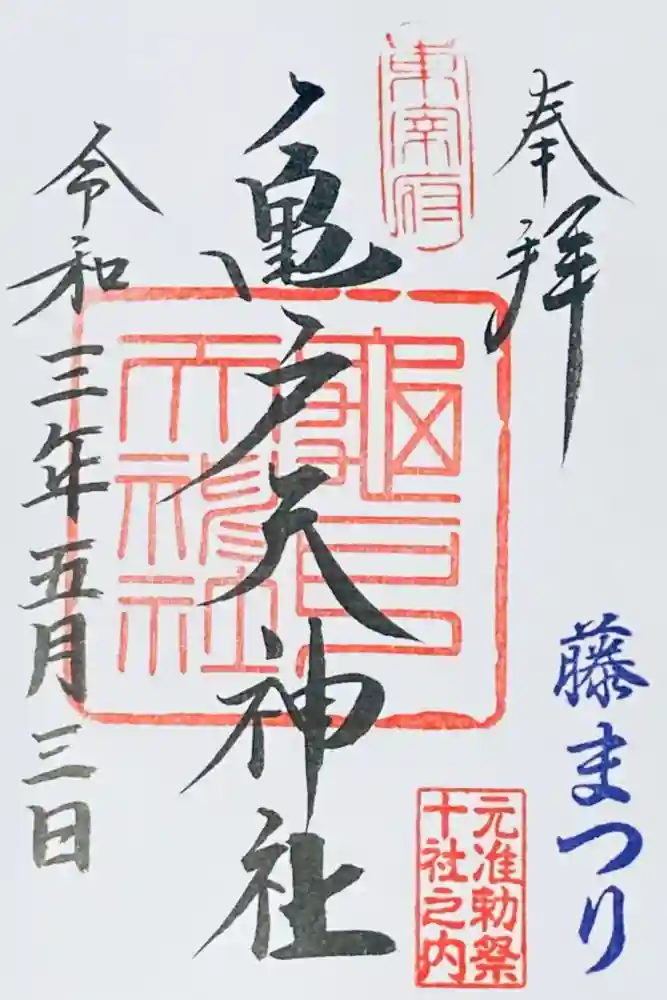 奉拝
藤まつり
東宰府
亀戸天神社
龜戸天神社
元准勅祭
十社之内
令和三年五月三日